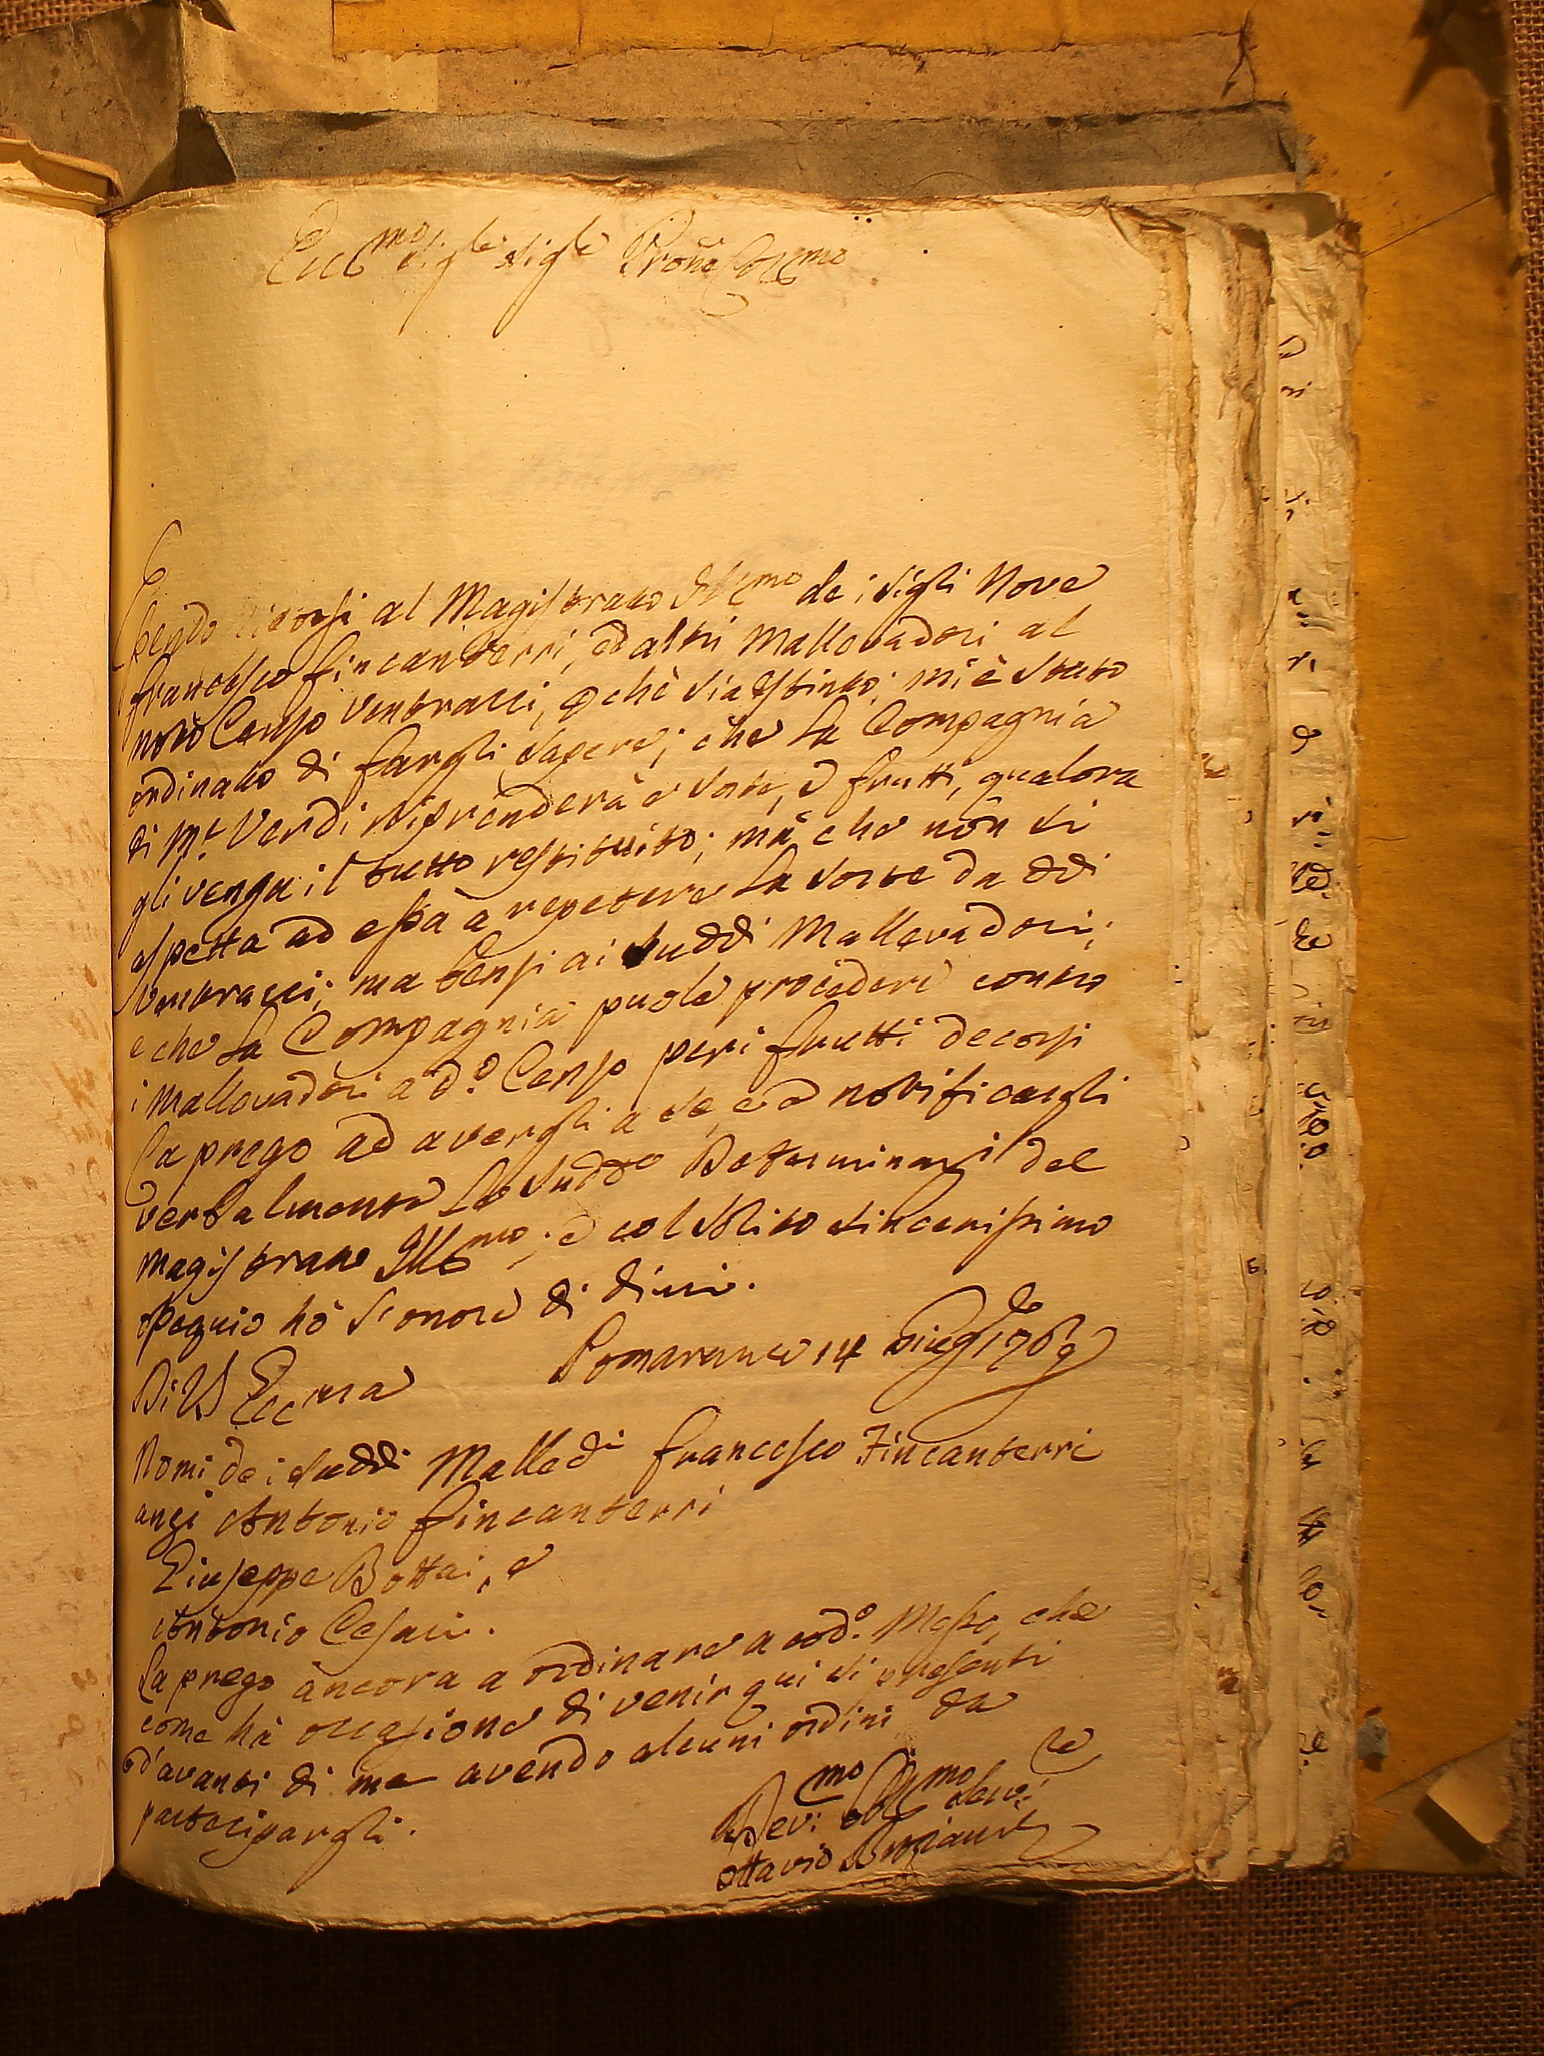 Ecc.mo Sig.re Sig.re Prone Col.mo
Essendo ricorsi al Magistrato Ill.mo de i Sig.ri Nove
Francesco Fincanterri, ed altri Mallevadori al
noto Censo Venbracci, p che sia Estinto; mi è stato
ordinato di fargli sapere; che la Compagnia
di M.te Verdi riprenderà e sorte, e frutti, qualora
gli venga il tutto restituito; mà che non si
aspetta ad essa a repetere la sorte da ddi
Venbracci; ma bensi ai suddi Mallevadori;
e che la Compagnia puole procedere contro
i Mallevadori a d.o Censo per i frutti decorsi
La prego ad avergli a se, e a notificargli
verbalmente le sudde Determinazi del
Magistrato Ill.mo; e col solito sincerissimo
ossequio hò l'onore di dirmi.
Di VS Ecc.ma Pomarance 14 Giug 1769
Nomi de i suddi Malledi Francesco Fincanterri
anzi Antonio Fincanterri
Giuseppe Bottai, e
Antonio Cesari.
La prego ancora a ordinare a cod.o Messo, che
come hà occasione di venir qui si presenti
d'avanti di me avendo alcuni ordini da
partecipargli.
Dev.mo Obl.mo Serv.re
Ottavio